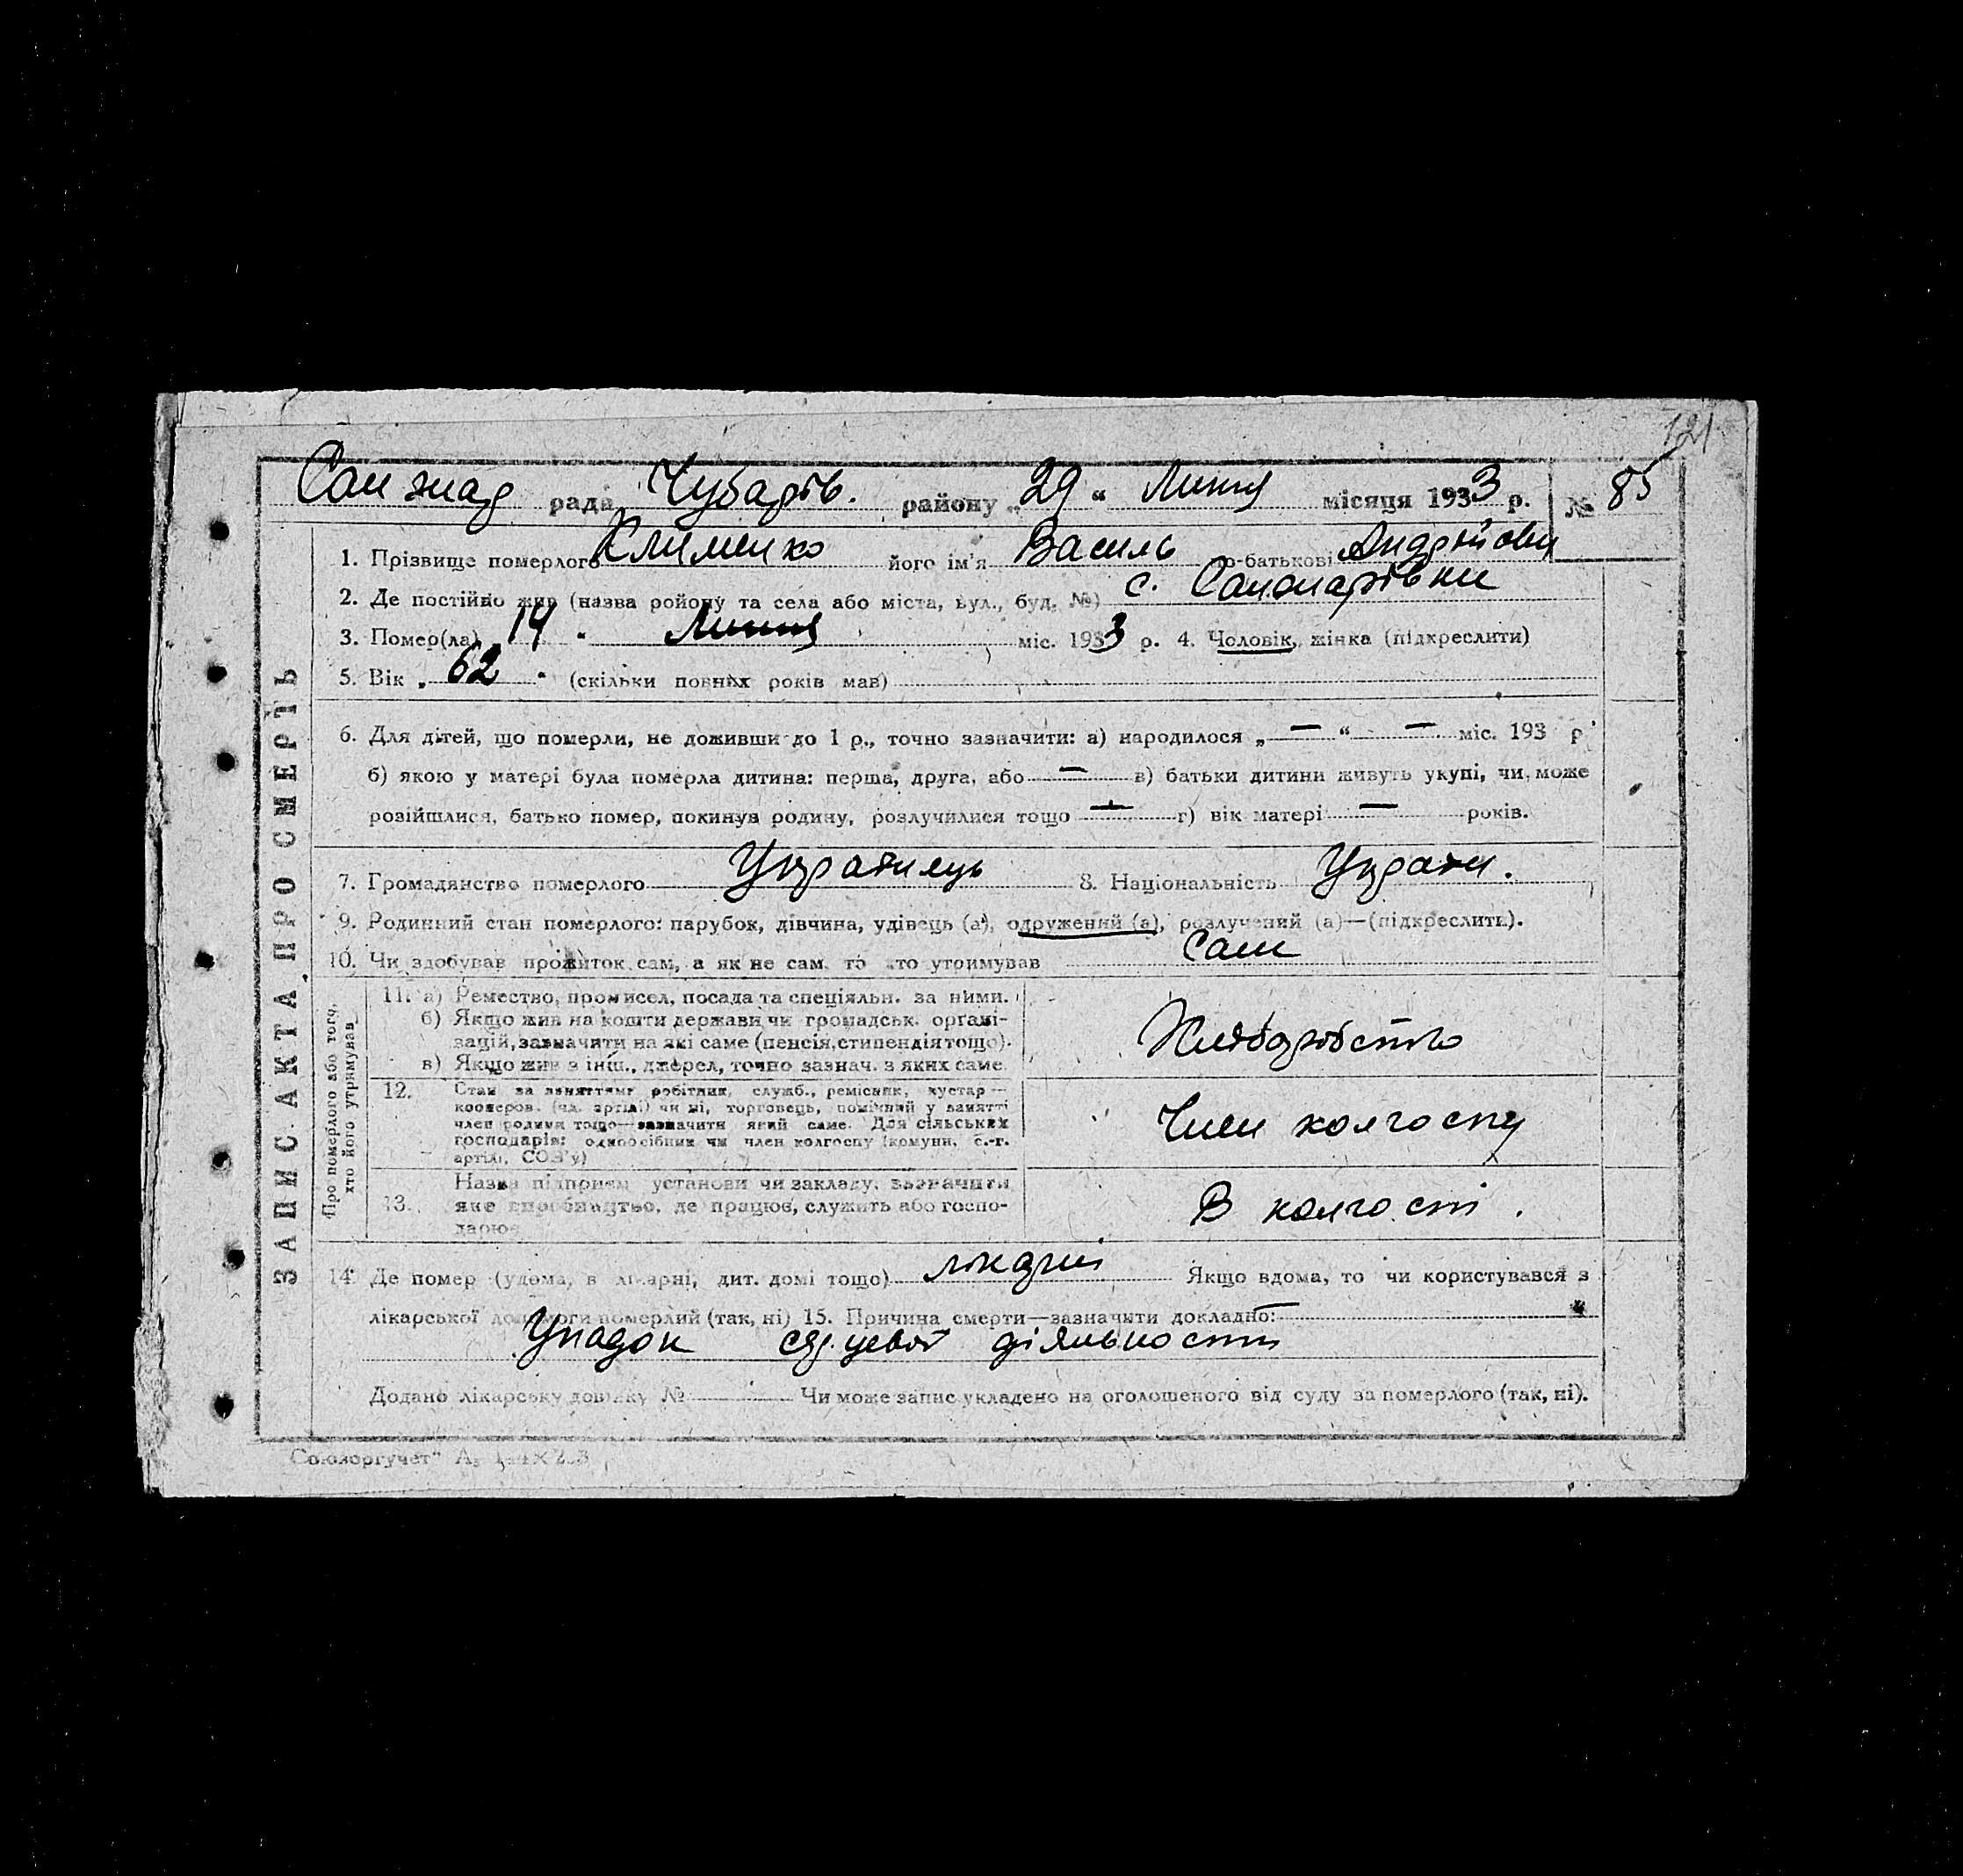 121
рада Чубарів. району „29“ Липня місяця 1933 р. № 85
ЗАПИС АКТА ПРО СМЕРТЬ
1. Прізвище померлого Клименко його ім'я Василь по-батькові Андрійович
2. Де постійно жив (назва ройону та села або міста, вул., буд. №) с.
3. Помер(ла) 14 " Липня міс. 1933 р. 4. Чоловік, жінка (підкреслити)
5. Вік „ 62 " (скільки повних років мав)
6. Для дітей, що померли, не доживши до 1 р., точно зазначити: а) народилося „ — “ — міс. 193 р
б) якою у матері була померла дитина: перша, друга, або — в) батьки дитини живуть укупі, чи може
розійшлися, батько помер, покинув родину, розлучилися тощо — г) вік матері — років.
7. Громадянство померлого Українець 8. Національність Україн.
9. Родинний стан померлого: парубок, дівчина, удівець (а), одружений (а), розлучений (а)—(підкреслити).
10. Чи здобував прожиток сам, а як не сам, то хто утримував Сам
Про померлого або того,
хто його утримував
11. а) Ремество, промисел, посада та спеціяльн. за ними.
б) Якщо жив на кошти держави чи громадськ. органі-
зацій, зазначити на які саме (пенсія, стипендія тощо).
в) Якщо жив з інш., джерел, точно зазнач. з яких саме.
Хліборобство
12. Стан за заняттями робітник, служб., ремісник, кустар—
кооперов. (чл. артілі) чи ні, торговець, помічний у занятті
член родини тощо—зазначити який саме. Для сільських
господарів: одноосібник чи член колгоспу (комуни, с.-г.
артілі, СОЗ'у)
Член колгоспу
13. Назва підприєм установи чи закладу, зазначити
яке виробництво, де працює, служить або госпо-
дарює
В колгоспі.
14. Де помер (удома, в лікарні, дит. домі тощо) лікарні Якщо вдома, то чи користувався з
лікарської допомоги померлий (так, ні) 15. Причина смерти—зазначити докладно:
Упадок діяльности
Додано лікарську довідку № Чи може запис укладено на оголошеного від суду за померлого (так, ні).
„Союзоргучет“